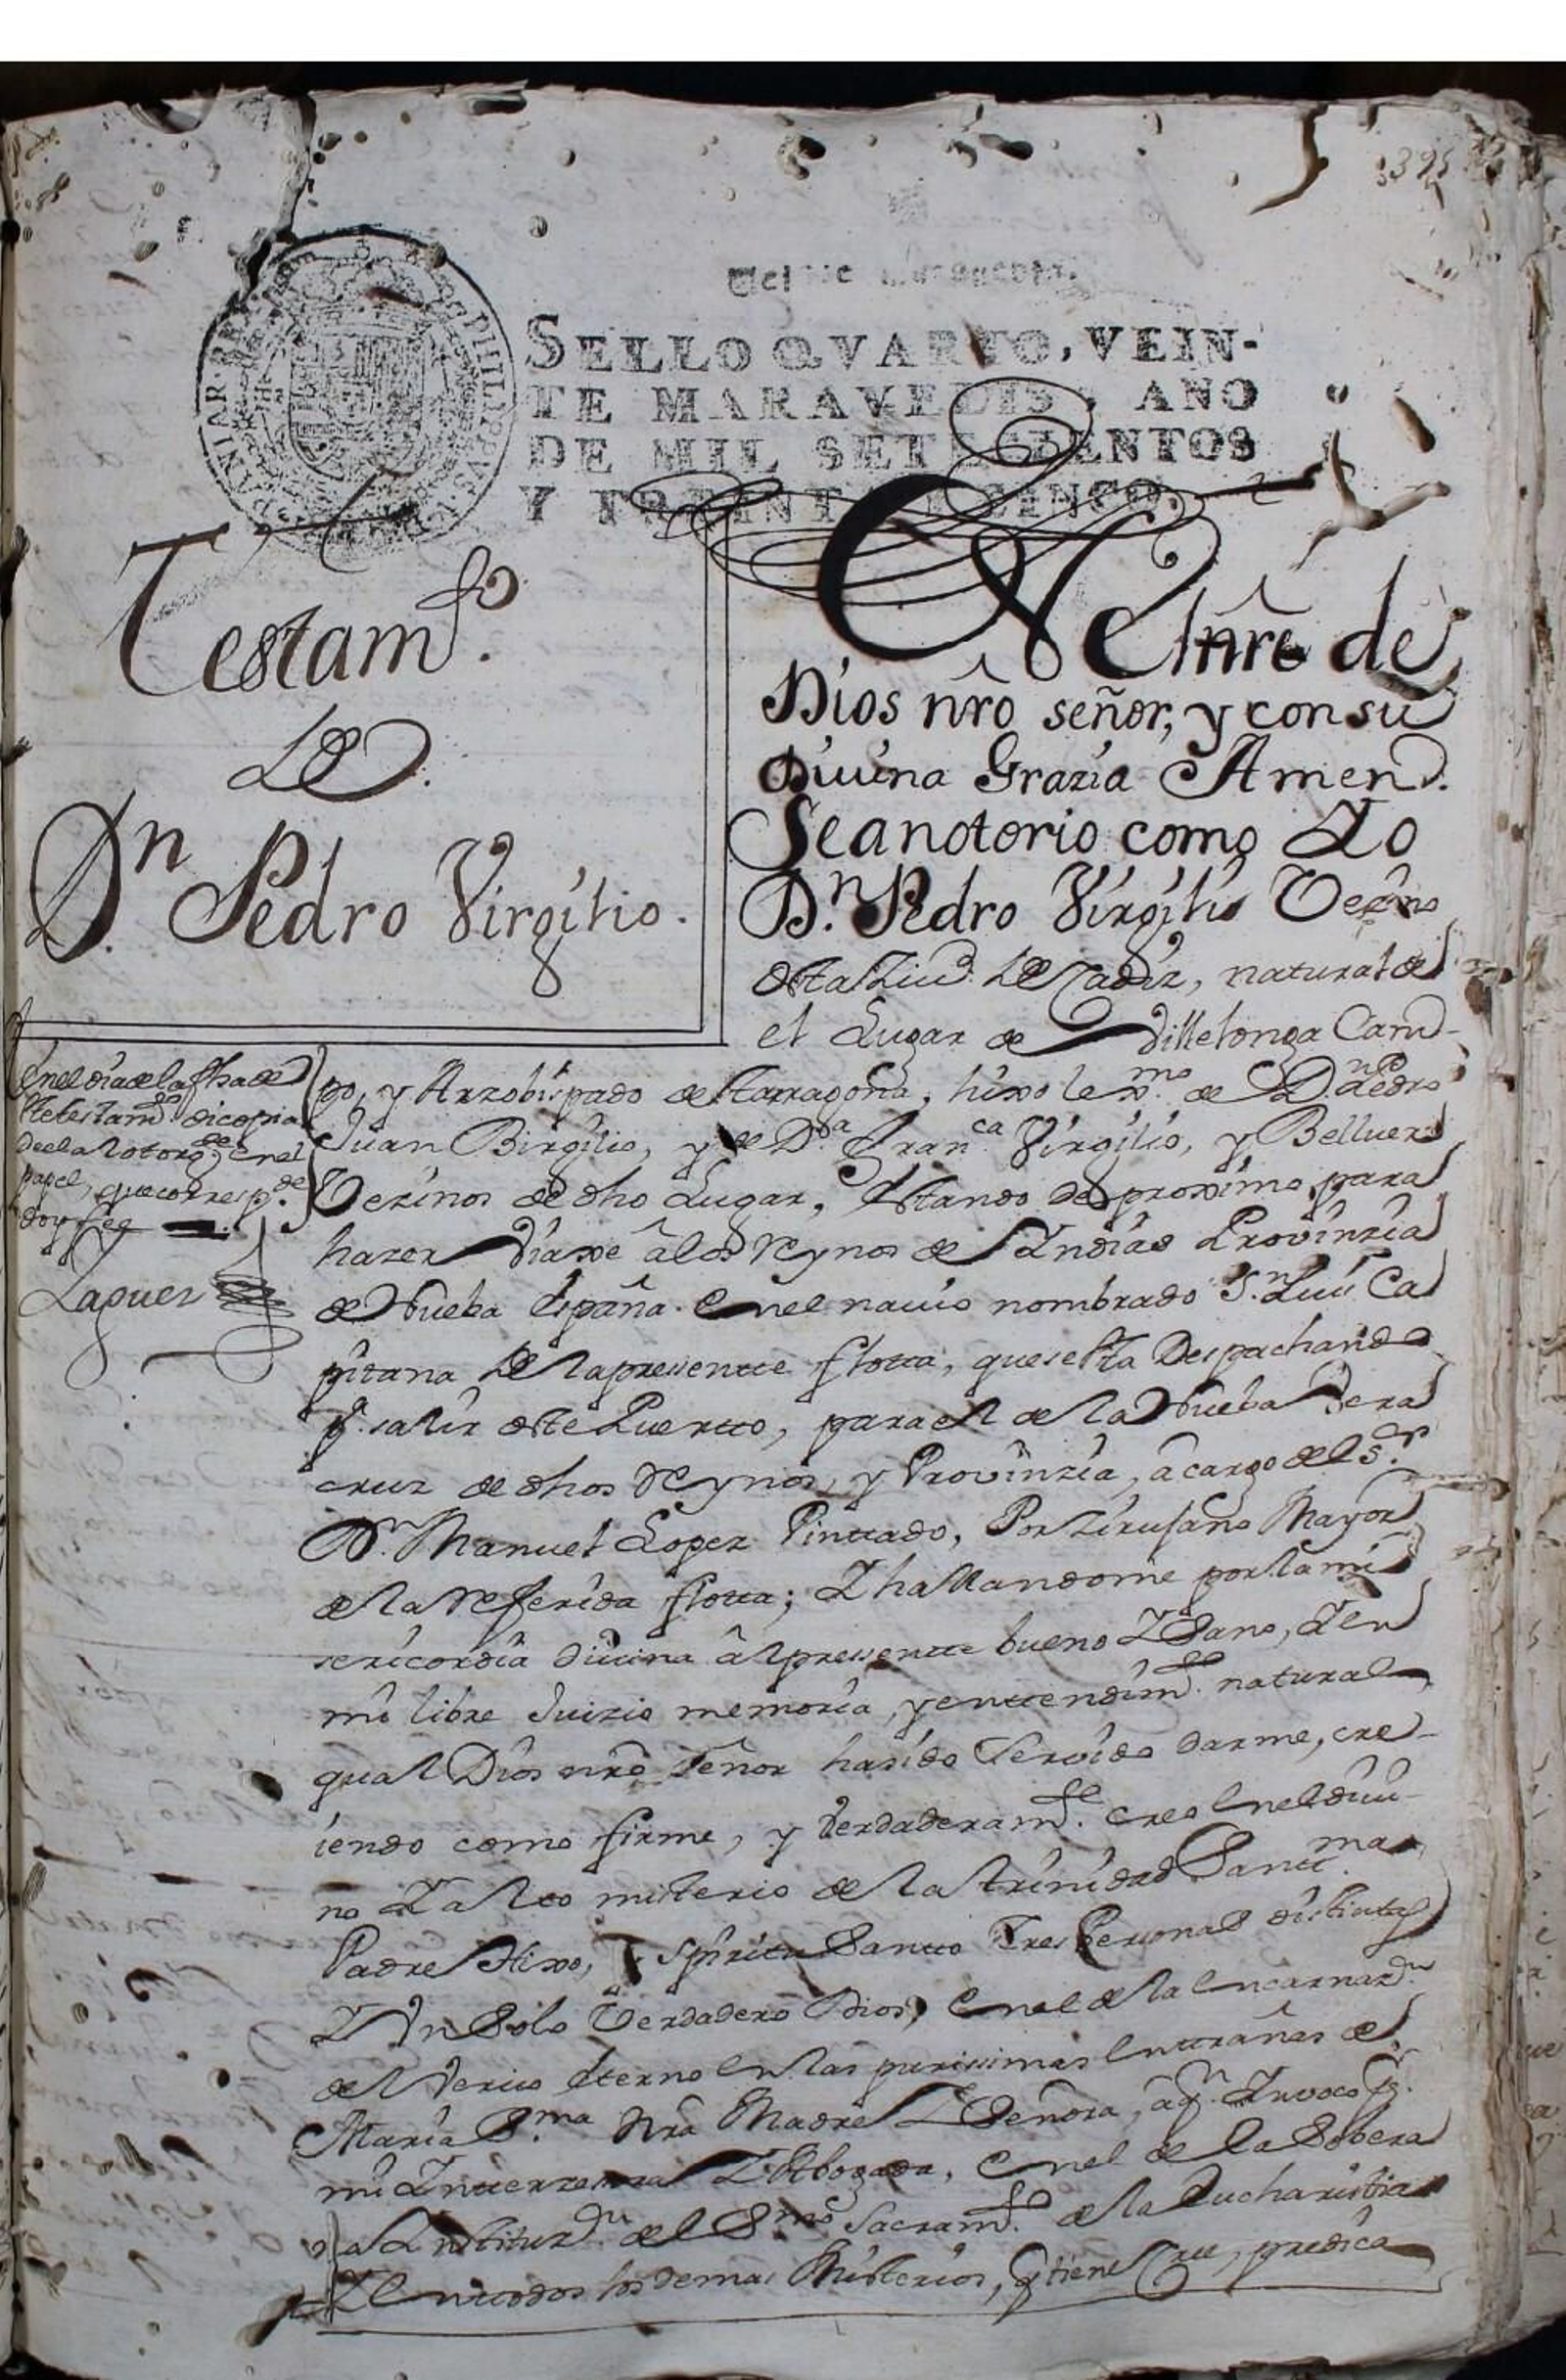 395
SELLO QVARTO, VEIN-
TE MARAVEDIS, AÑO
DE MIL SETECIENTOS
Y TREINTA Y CINCO.
Testam.to
De
D.n Pedro Virgilio.
En el Nre de
Dios nro señor, y con su
Diuina Grazia Amen.
Sea notorio como Yo
D.n Pedro Virgilio Vezino
desta Ziud. de Cadiz, natural de
el Lugar de Villelonga Cam-
po, y Arzobispado de Tarragona, hixo lex.mo de D.n Pedro
Juan Birgilio, y de D.a Fran.ca Virgilio, y Belluer
Vezinos de dho Lugar, Estando de proximo para
hazer Viaxe â los Reynos de Yndias Provinzia
de Nueba España. en el nauio nombrado S.n Luis Ca
pitana de la pressentte flotta, que se esta Despachando
p.a salir deste Puertto, para el de la Nueba Vera
cruz de dhos Reynos, y Provinzia, a cargo del S.or
D.n Manuel Lopez Pinttado, Por Zirujano Mayor
de la Referida flotta; Y hallandome por la mi
sericordia diuina âl pressentte bueno Y Sano, Y en
mi libre Juizio memoria, y enttendim.to natural
qual Dios nro Señor ha sido Servido darme, cre-
iendo como firme, y Verdaderam.te creo en el diui-
no Y alto misterio de la trinidad Santt.ma
Padre Hixo, Y Spiritu Santto Tres Personas distintas
Y Vn Solo Verdadero Dios, en el de la encarnaz.on
del Veruo Eterno en las purissimas enttrañas de
Maria S.ma Nra Madre Y Señora, â q.n Ynvoco p.r
mi Ynterzesora Y Abogada, en el de la Sobera
na Ynstituz.on del S.mo Sacram.to de la Eucharistia
Y en ttodos los demas Misterios, q tiene cree, predica
En el dia de la fha de
este testam.to di copia
de el a lotorg.te en el
papel, que corresp.de
doy fee